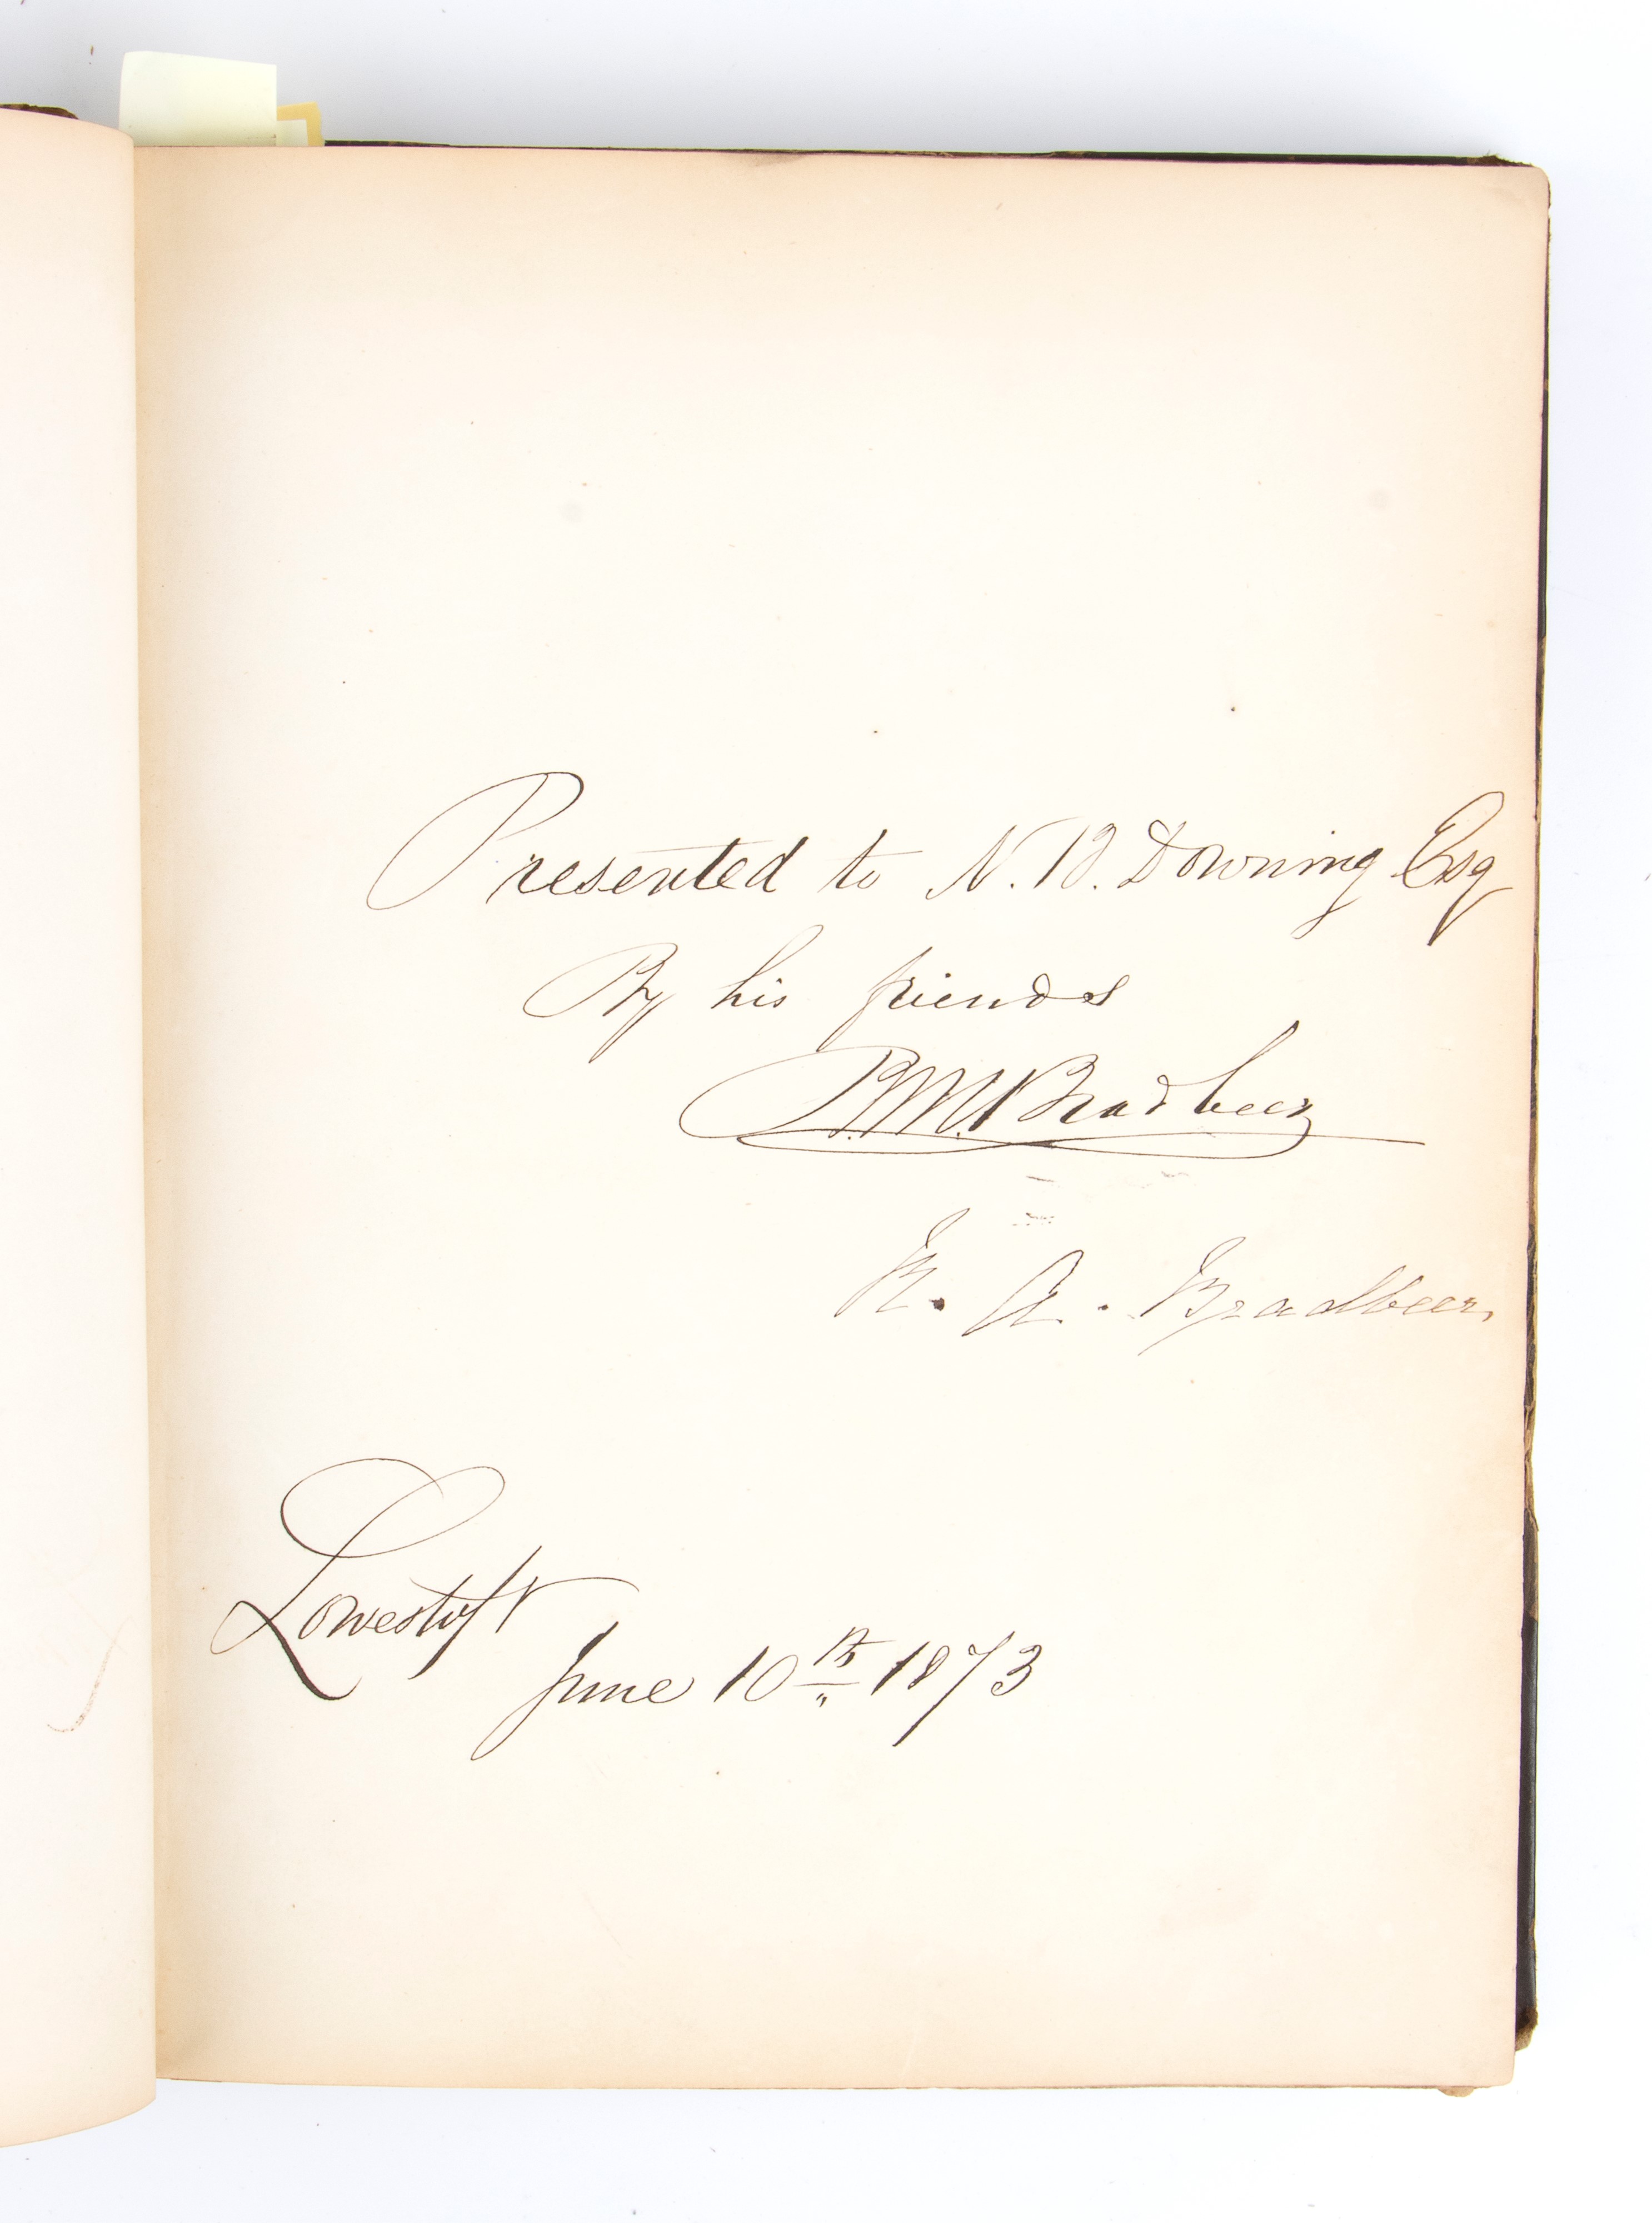 Presented to N. B. Downing Esq
By his friends
B. M. Bradbeer
N. A. Bradbeer
Lowestoft
June 10th 1873